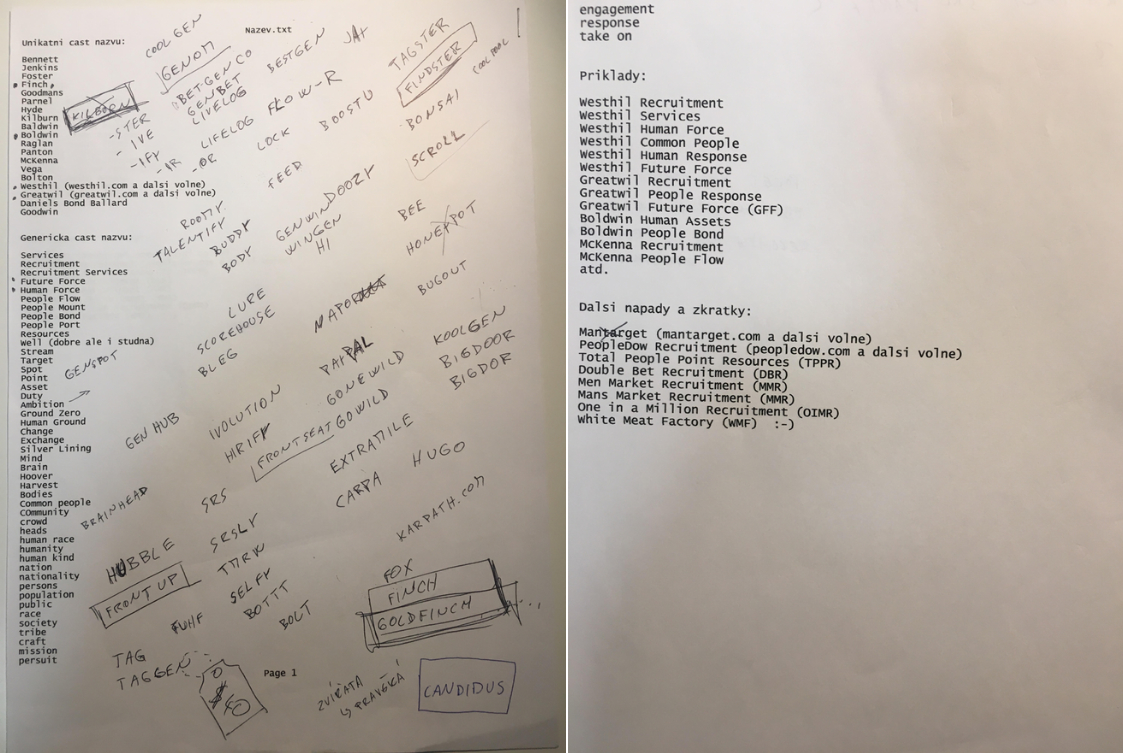 Nazev.txt
Unikatni cast nazvu:
Bennett
Jenkins
Foster
Finch
Goodmans
Parnel
Hyde
Kilburn
Baldwin
Boldwin
Raglan
Panton
McKenna
Vega
Bolton
Westhil (westhil.com a dalsi volne)
Greatwil (greatwil.com a dalsi volne)
Daniels Bond Ballard
Goodwin
Genericka cast nazvu:
Services
Recruitment
Recruitment Services
Future Force
Human Force
People Flow
People Mount
People Bond
People Port
Resources
Well (dobre ale i studna)
Stream
Target
Spot
Point
Asset
Duty
Ambition
Ground Zero
Human Ground
Change
Exchange
Silver Lining
Mind
Brain
Hoover
Harvest
Bodies
Common people
COmmunity
crowd
heads
human race
humanity
human kind
nation
nationality
persons
population
public
race
society
tribe
craft
mission
persuit
Page 1
COOL GEN
GENOM
KILBORN
BET-GEN CO
GENBET
LIVELOG
BESTGEN
JAY
TAGSTER
FINDSTER
COOL POOL
-STER
-IVE
-IFY
-IR
-OR
LIFELOG
FLOW-R
LOCK
BOOSTU
BONSAI
SCROLL
FEED
ROOMY
TALENTIFY
BUDDY
BODY
GENWIN
WINGEN
HI
DOOZY
BEE
HONEYPOT
BUGOUT
LURE
SCOREHOUSE
BLEG
GENSPOT
PAYPAL
GONEWILD
GOWILD
KOOLGEN
BIGDOOR
BIGDOR
GEN HUB
IVOLUTION
HIRIFY
FRONTSEAT
EXTRAMILE
HUGO
CARPA
BRAINHEAD
SRS
KARPATH.COM
HUBBLE
SRSLY
TMRW
FRONT UP
SELFY
BOTTT
BOLT
FUHF
FOX
FINCH
GOLDFINCH
TAG
TAGGEN
ZVÍŘATA
↳ PRAVSKÁ
CANDIDUS
engagement
response
take on
Priklady:
Westhil Recruitment
Westhil Services
Westhil Human Force
Westhil Common People
Westhil Human Response
Westhil Future Force
Greatwil Recruitment
Greatwil People Response
Greatwil Future Force (GFF)
Boldwin Human Assets
Boldwin People Bond
McKenna Recruitment
McKenna People Flow
atd.
Dalsi napady a zkratky:
Mantarget (mantarget.com a dalsi volne)
PeopleDow Recruitment (peopledow.com a dalsi volne)
Total People Point Resources (TPPR)
Double Bet Recruitment (DBR)
Men Market Recruitment (MMR)
Mans Market Recruitment (MMR)
One in a Million Recruitment (OIMR)
White Meat Factory (WMF) :-)